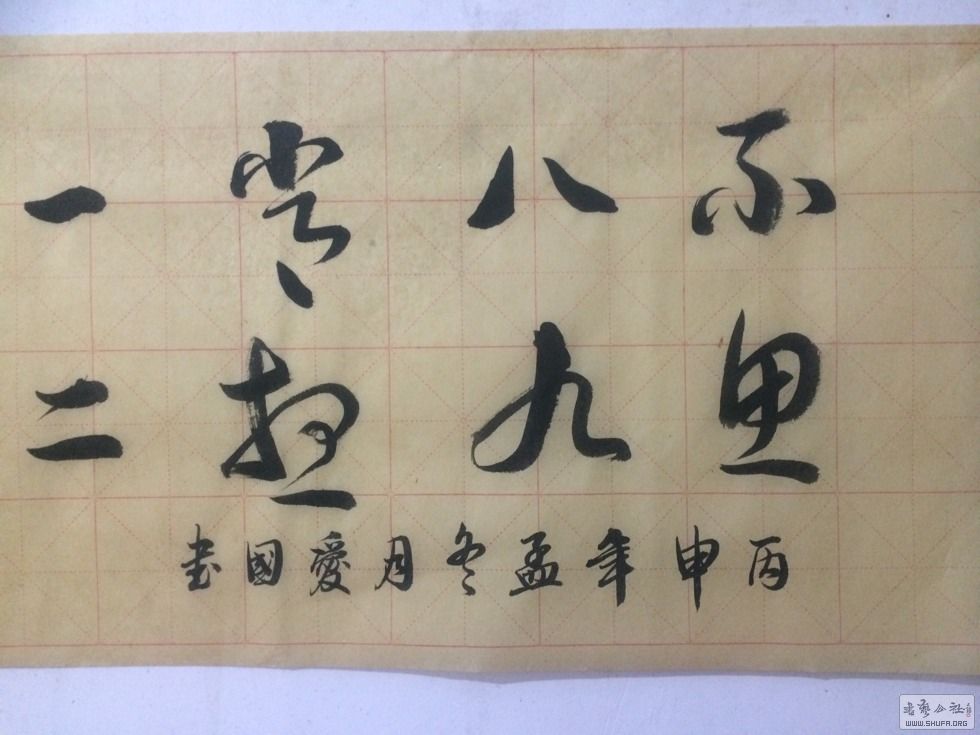 不思
八九
常想
一二
丙申年孟冬月愛國書
书艺公社
WWW.SHUFA.ORG